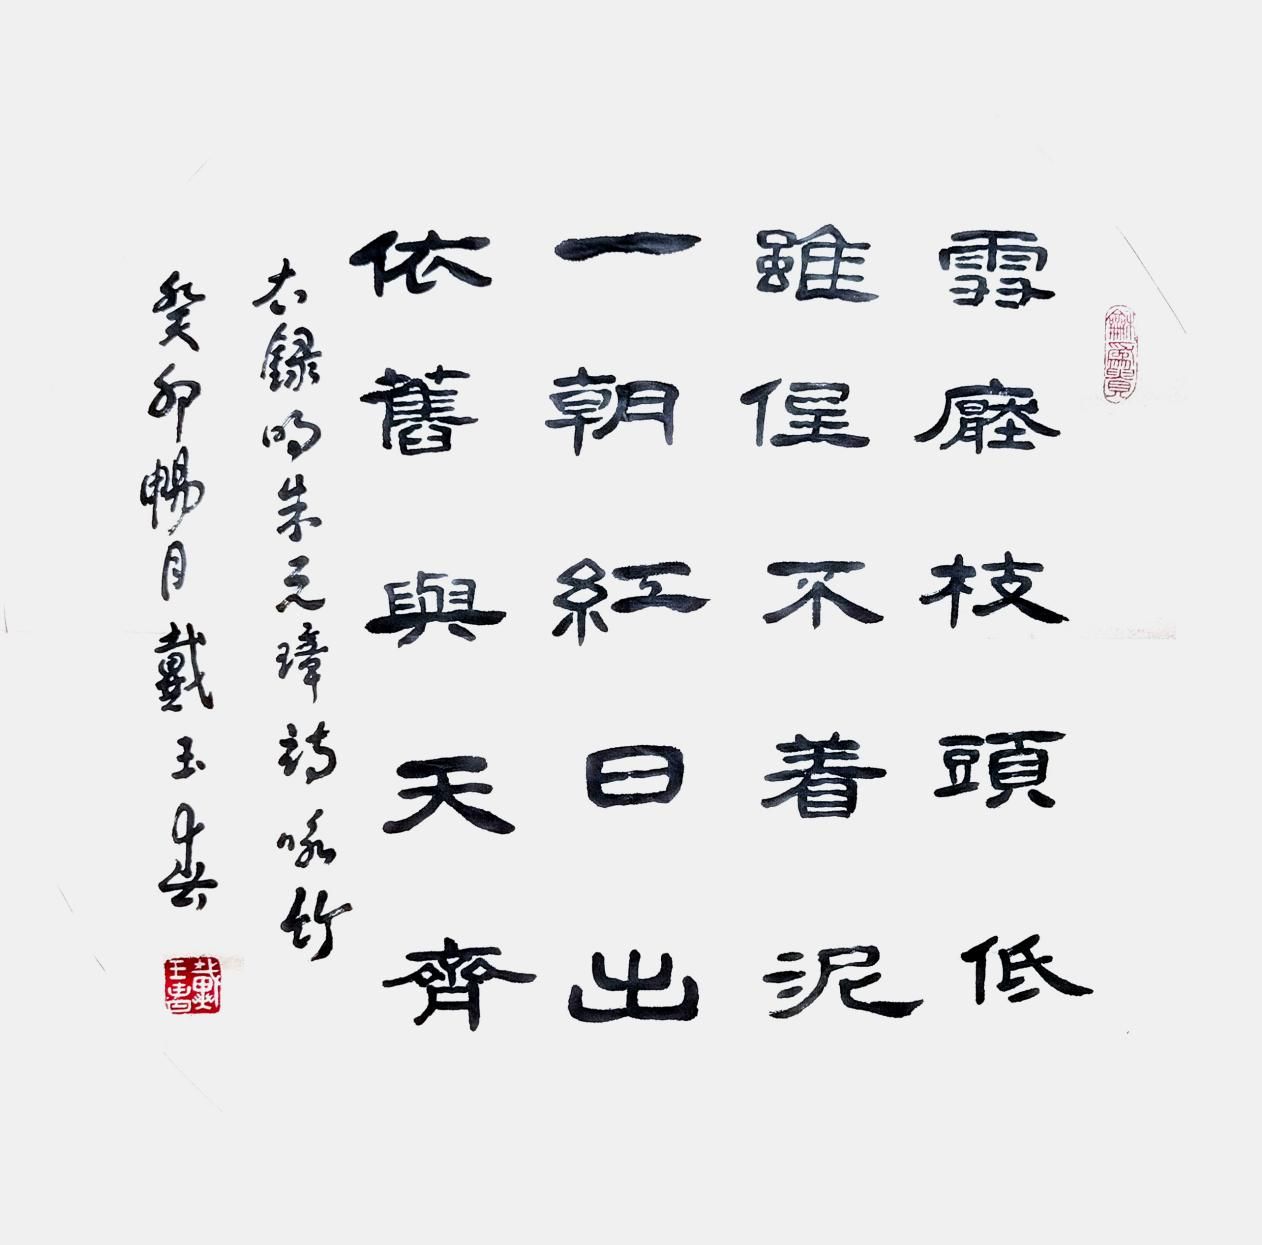 雪壓枝頭低
雖低不着泥
一朝紅日出
依舊與天齊
右録明朱元璋詩咏竹
癸卯暢月戴玉書